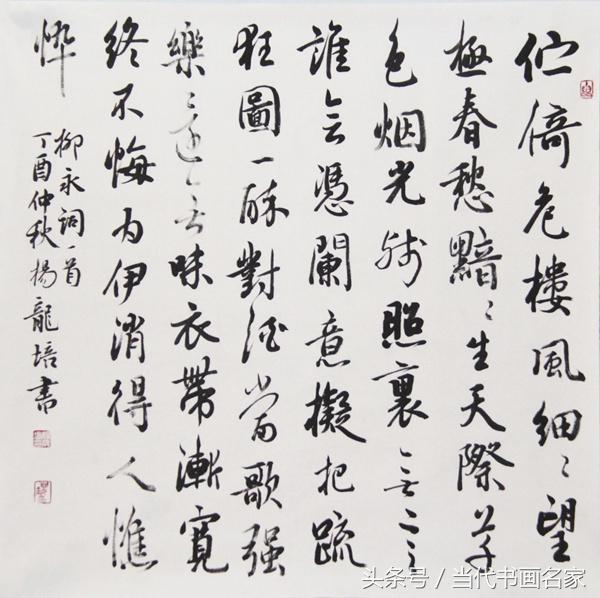 伫倚危樓風細〻望
極春愁黯〻生天際草
色烟光残照裏無言
誰会憑闌意擬把疏
狂圖一酔對酒當歌强
樂〻還無味衣帶漸寬
終不悔为伊消得人憔
悴
柳永詞一首
丁酉仲秋楊龍培書
头条号 / 当代书画名家